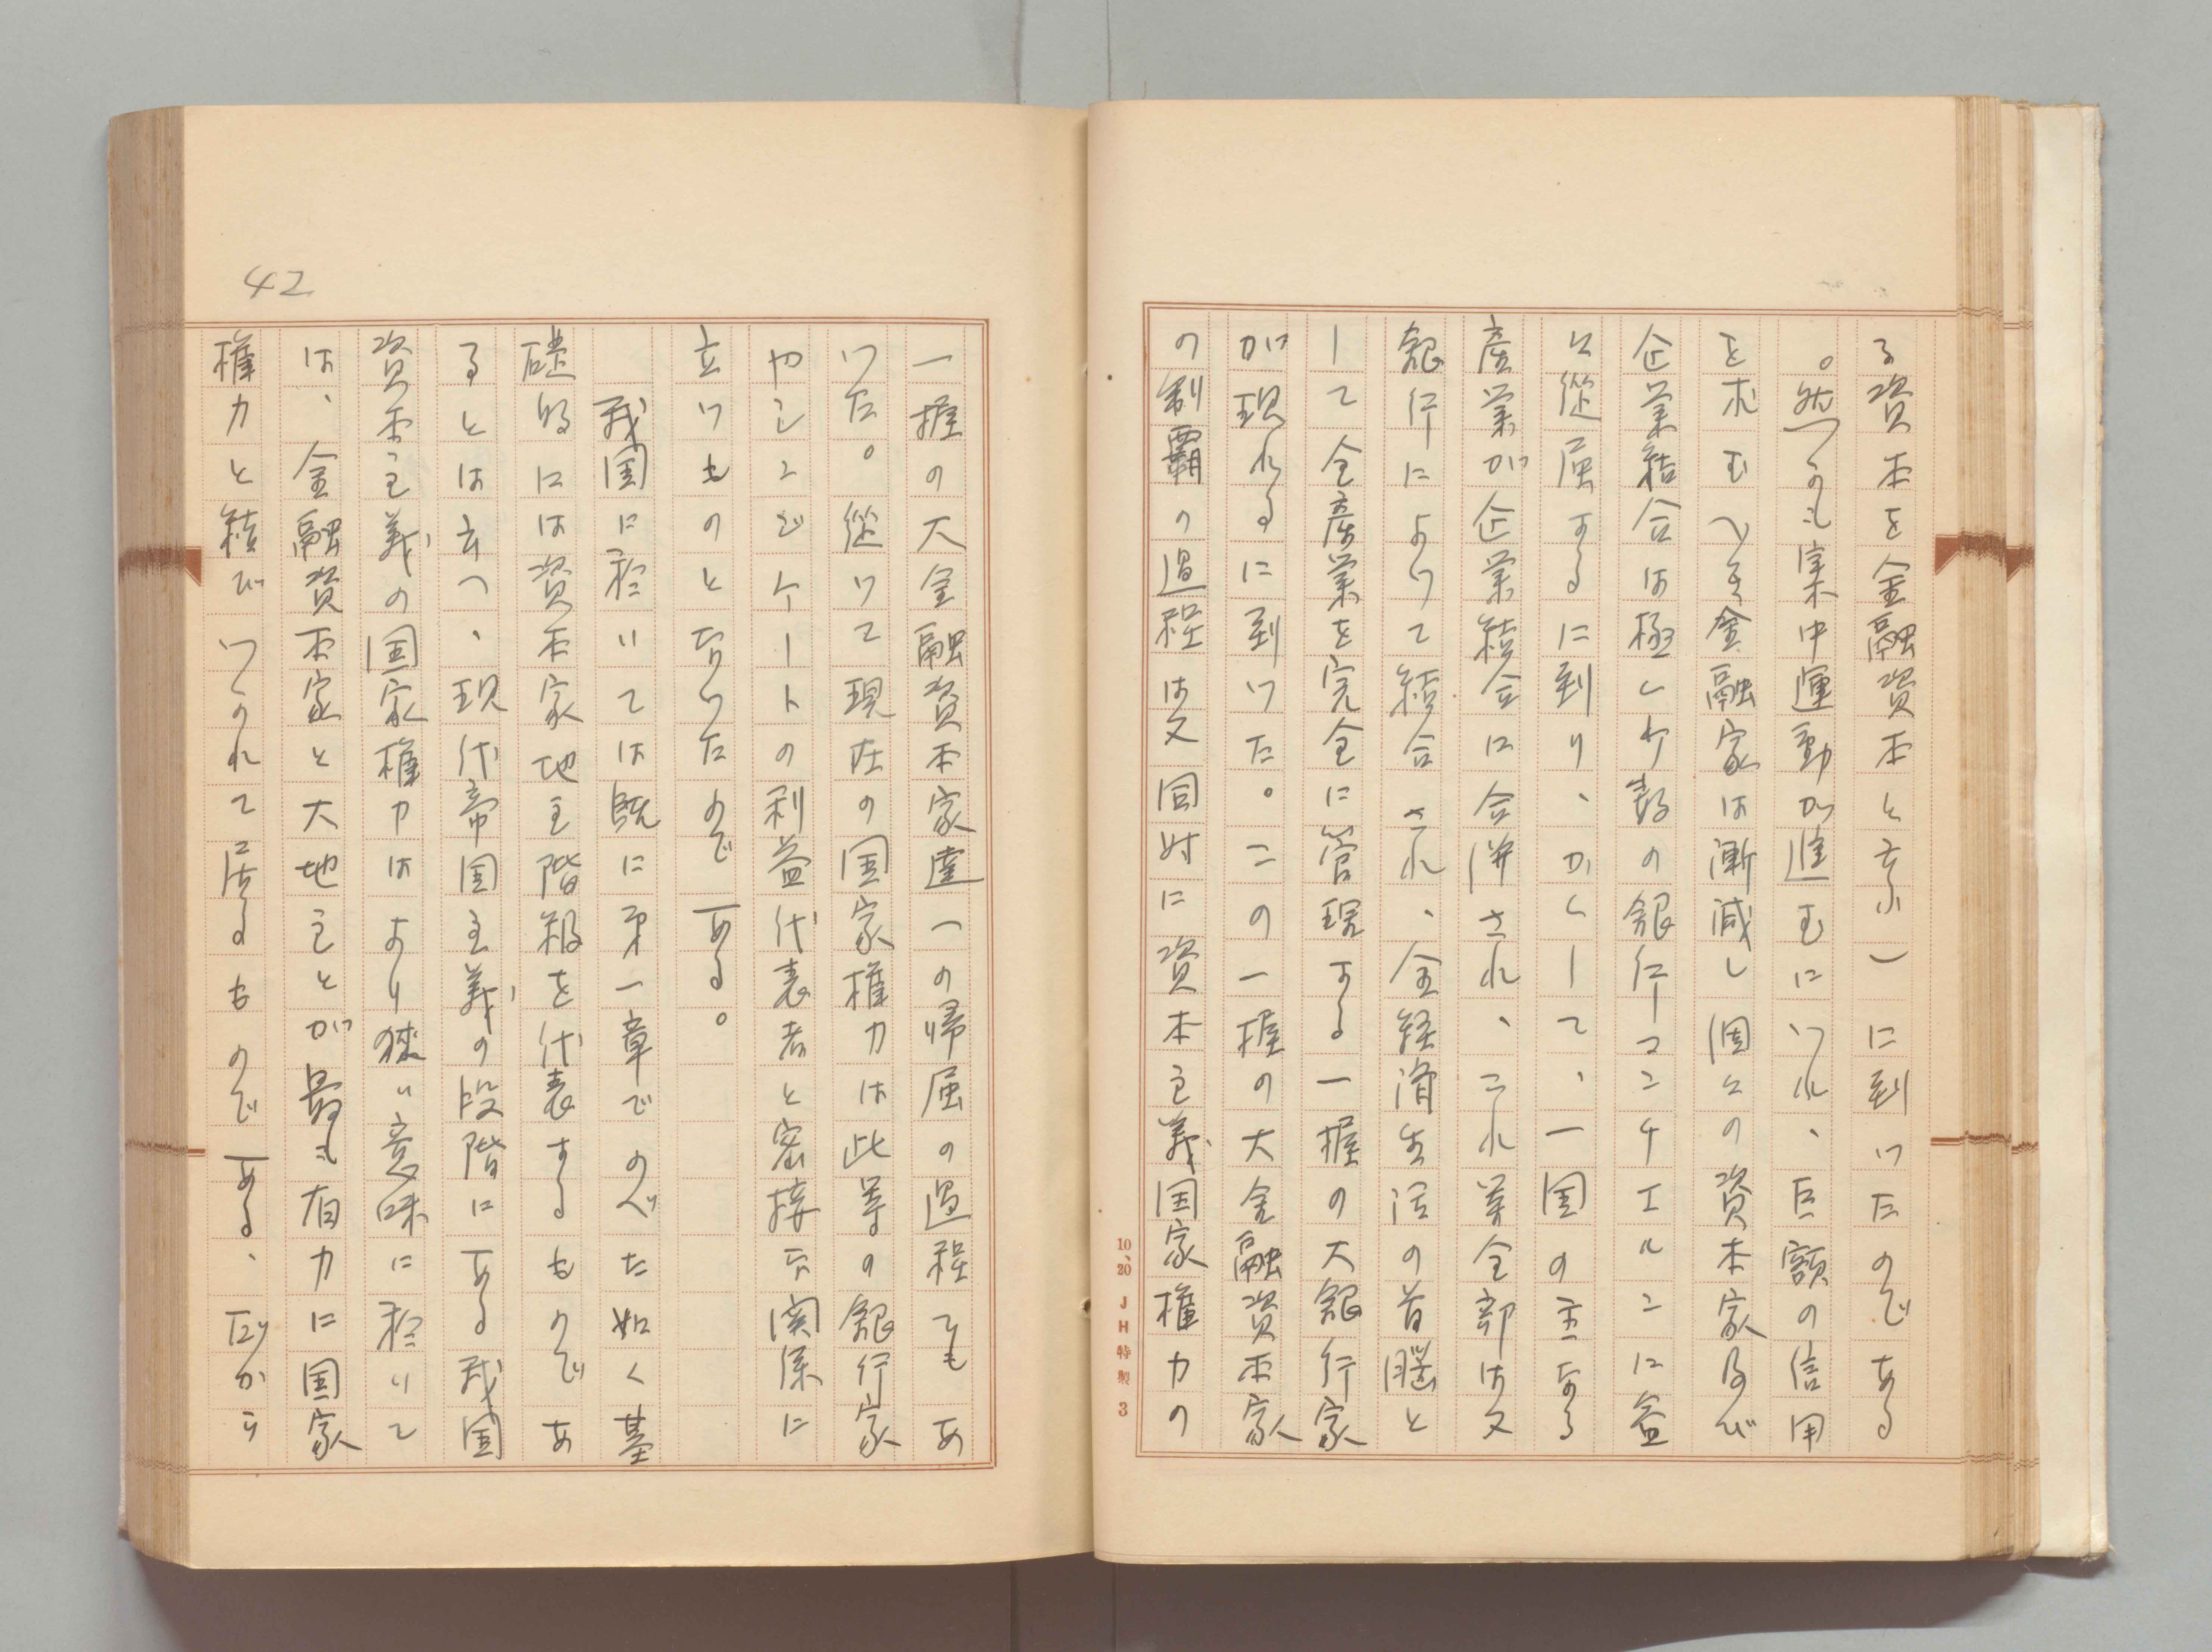 る資本を金融資本と云ふ）に到ったのである
。然かも集中運動が進むにつれ、巨額の信用
を求むべき金融家は漸減し個々の資本家及び
企業結合は極く少数の銀行コンチエルンに益
々從属するに到り、かくして、一国の主なる
産業が企業結合に合併され、これ等全部は又
銀行によって結合され、全経済生活の首脳と
して全産業を完全に管理する一握の大銀行家
が現れるに到った。この一握の大金融資本家
の制覇の過程は又同時に資本主義国家権力の
10、20 JH特製 3
42
一握の大金融資本家達への帰属の過程でもあ
った。從って現在の国家権力は此等の銀行家
やシンヂケートの利益代表者と密接な関係に
立つものとなったのである。
我国に於いては既に第一章でのべた如く基
礎的には資本家地主階級を代表するものであ
るとは云へ、現代帝国主義の段階にある我国
資本主義の国家権力はより狭い意味に於いて
は、金融資本家と大地主とが最も有力に国家
権力と結びつかれて居るものである、だから